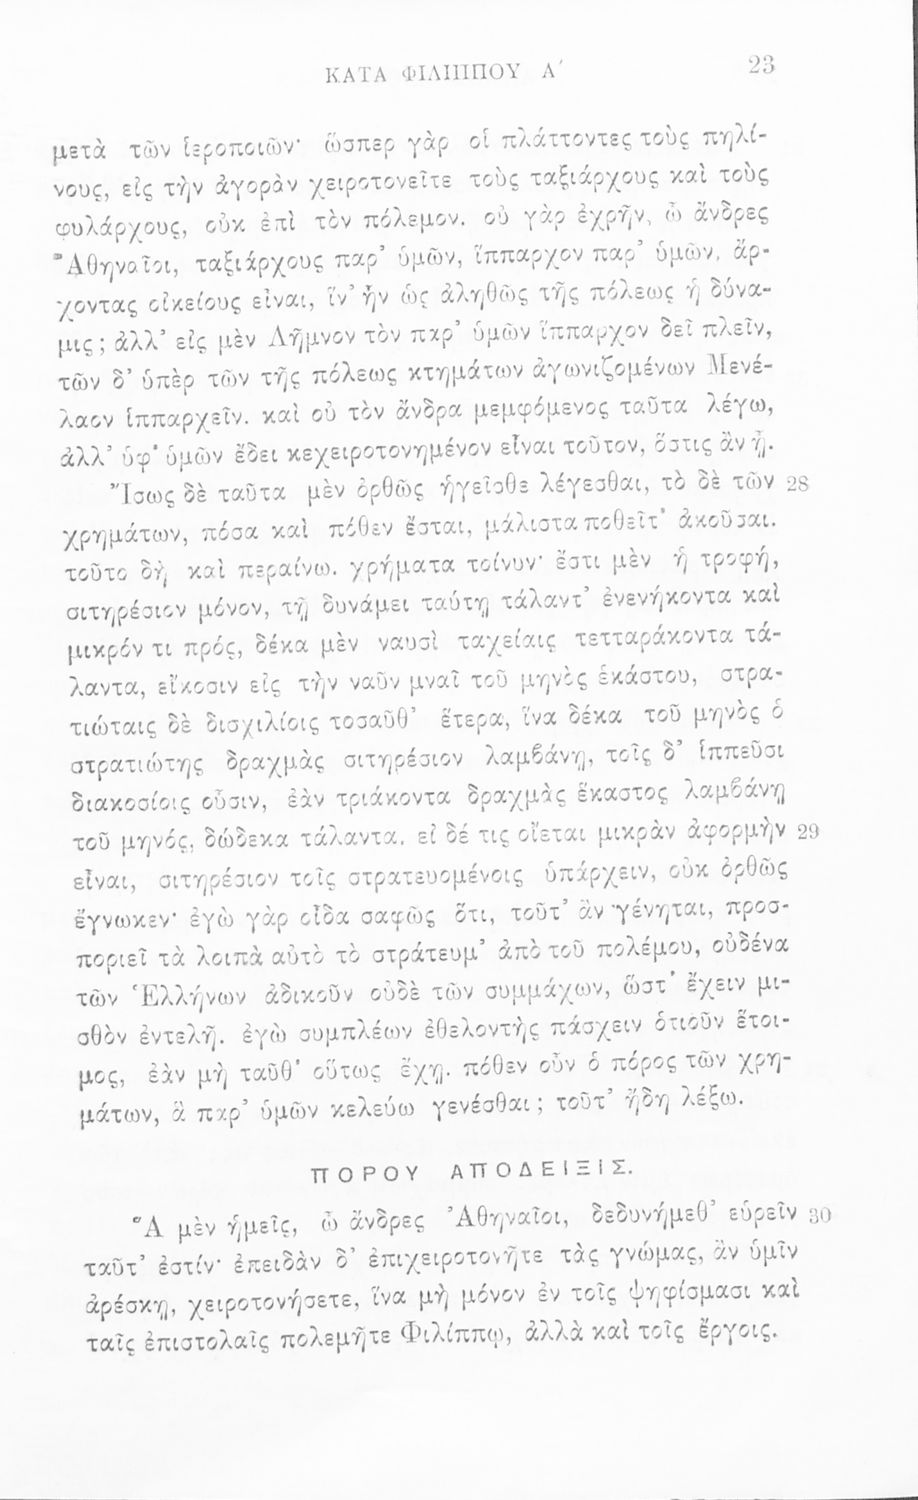 ΚΑΤΑ ΦΙΛΙΠΠΟΥ Α′ 23
μετὰ τῶν ἱεροποιῶν· ὥσπερ γὰρ οἱ πλάττοντες τοὺς πηλί-
νους, εἰς τὴν ἀγορὰν χειροτονεῖτε τοὺς ταξιάρχους καὶ τοὺς
φυλάρχους, οὐκ ἐπὶ τὸν πόλεμον. οὐ γὰρ ἐχρῆν, ὦ ἄνδρες
Ἀθηναῖοι, ταξιάρχους παρ’ ὑμῶν, ἵππαρχον παρ’ ὑμῶν, ἄρ-
χοντας οἰκείους εἶναι, ἵν’ ἦν ὡς ἀληθῶς τῆς πόλεως ἡ δύνα-
μις; ἀλλ’ εἰς μὲν Λῆμνον τὸν παρ’ ὑμῶν ἵππαρχον δεῖ πλεῖν,
τῶν δ’ ὑπὲρ τῶν τῆς πόλεως κτημάτων ἀγωνιζομένων Μενέ-
λαον ἱππαρχεῖν. καὶ οὐ τὸν ἄνδρα μεμφόμενος ταῦτα λέγω,
ἀλλ’ ὑφ’ ὑμῶν ἔδει κεχειροτονημένον εἶναι τοῦτον, ὅστις ἂν ᾖ.
Ἴσως δὲ ταῦτα μὲν ὀρθῶς ἡγεῖσθε λέγεσθαι, τὸ δὲ τῶν 28
χρημάτων, πόσα καὶ πόθεν ἔσται, μάλιστα ποθεῖτ’ ἀκοῦσαι.
τοῦτο δὴ καὶ περαίνω. χρήματα τοίνυν· ἔστι μὲν ἡ τροφή,
σιτηρέσιον μόνον, τῇ δυνάμει ταύτῃ τάλαντ’ ἐνενήκοντα καὶ
μικρόν τι πρός, δέκα μὲν ναυσὶ ταχείαις τετταράκοντα τά-
λαντα, εἴκοσιν εἰς τὴν ναῦν μναῖ τοῦ μηνὸς ἑκάστου, στρα-
τιώταις δὲ δισχιλίοις τοσαῦθ’ ἕτερα, ἵνα δέκα τοῦ μηνὸς ὁ
στρατιώτης δραχμὰς σιτηρέσιον λαμβάνῃ, τοῖς δ’ ἱππεῦσι
διακοσίοις οὖσιν, ἐὰν τριάκοντα δραχμὰς ἕκαστος λαμβάνῃ
τοῦ μηνός, δώδεκα τάλαντα. εἰ δέ τις οἴεται μικρὰν ἀφορμὴν 29
εἶναι, σιτηρέσιον τοῖς στρατευομένοις ὑπάρχειν, οὐκ ὀρθῶς
ἔγνωκεν· ἐγὼ γὰρ οἶδα σαφῶς ὅτι, τοῦτ’ ἂν γένηται, προσ-
ποριεῖ τὰ λοιπὰ αὐτὸ τὸ στράτευμ’ ἀπὸ τοῦ πολέμου, οὐδένα
τῶν Ἑλλήνων ἀδικοῦν οὐδὲ τῶν συμμάχων, ὥστ’ ἔχειν μι-
σθὸν ἐντελῆ. ἐγὼ συμπλέων ἐθελοντὴς πάσχειν ὁτιοῦν ἕτοι-
μος, ἐὰν μὴ ταῦθ’ οὕτως ἔχῃ. πόθεν οὖν ὁ πόρος τῶν χρη-
μάτων, ἃ παρ’ ὑμῶν κελεύω γενέσθαι; τοῦτ’ ἤδη λέξω.
ΠΟΡΟΥ ΑΠΟΔΕΙΞΙΣ.
Ἃ μὲν ἡμεῖς, ὦ ἄνδρες Ἀθηναῖοι, δεδυνήμεθ’ εὑρεῖν 30
ταῦτ’ ἐστίν· ἐπειδὰν δ’ ἐπιχειροτονῆτε τὰς γνώμας, ἂν ὑμῖν
ἀρέσκῃ, χειροτονήσετε, ἵνα μὴ μόνον ἐν τοῖς ψηφίσμασι καὶ
ταῖς ἐπιστολαῖς πολεμῆτε Φιλίππῳ, ἀλλὰ καὶ τοῖς ἔργοις.